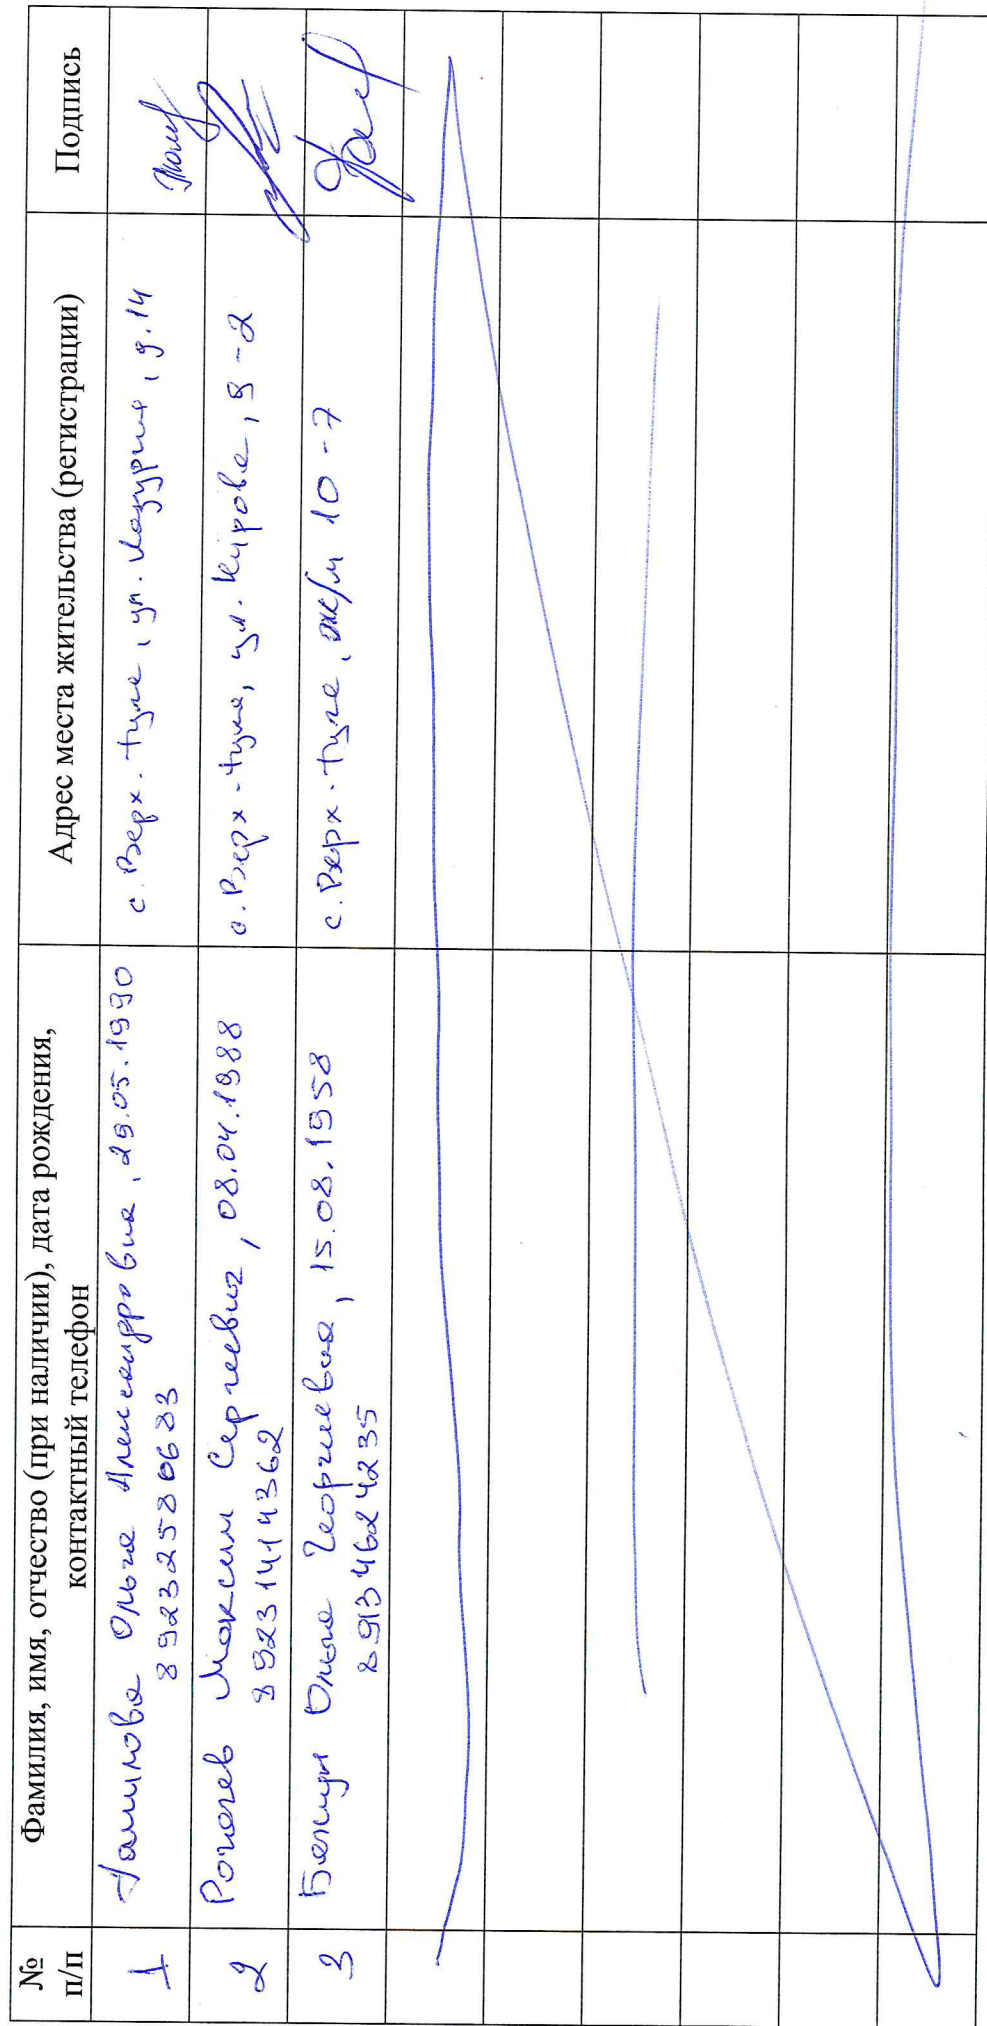 № п/п
Фамилия, имя, отчество (при наличии), дата рождения,
контактный телефон
Адрес места жительства (регистрации)
Подпись
1
Ольга Александровна, 29.05.1990
с. Верх-Тула, ул. Лазурная, д. 14
2
Максим Сергеевич, 08.04.1988
89231414362
с. Верх-Тула, ул. Кирова, 9-2
3
Ольга Георгиевна, 15.08.1958
89134624235
с. Верх-Тула, ж/м 10-7